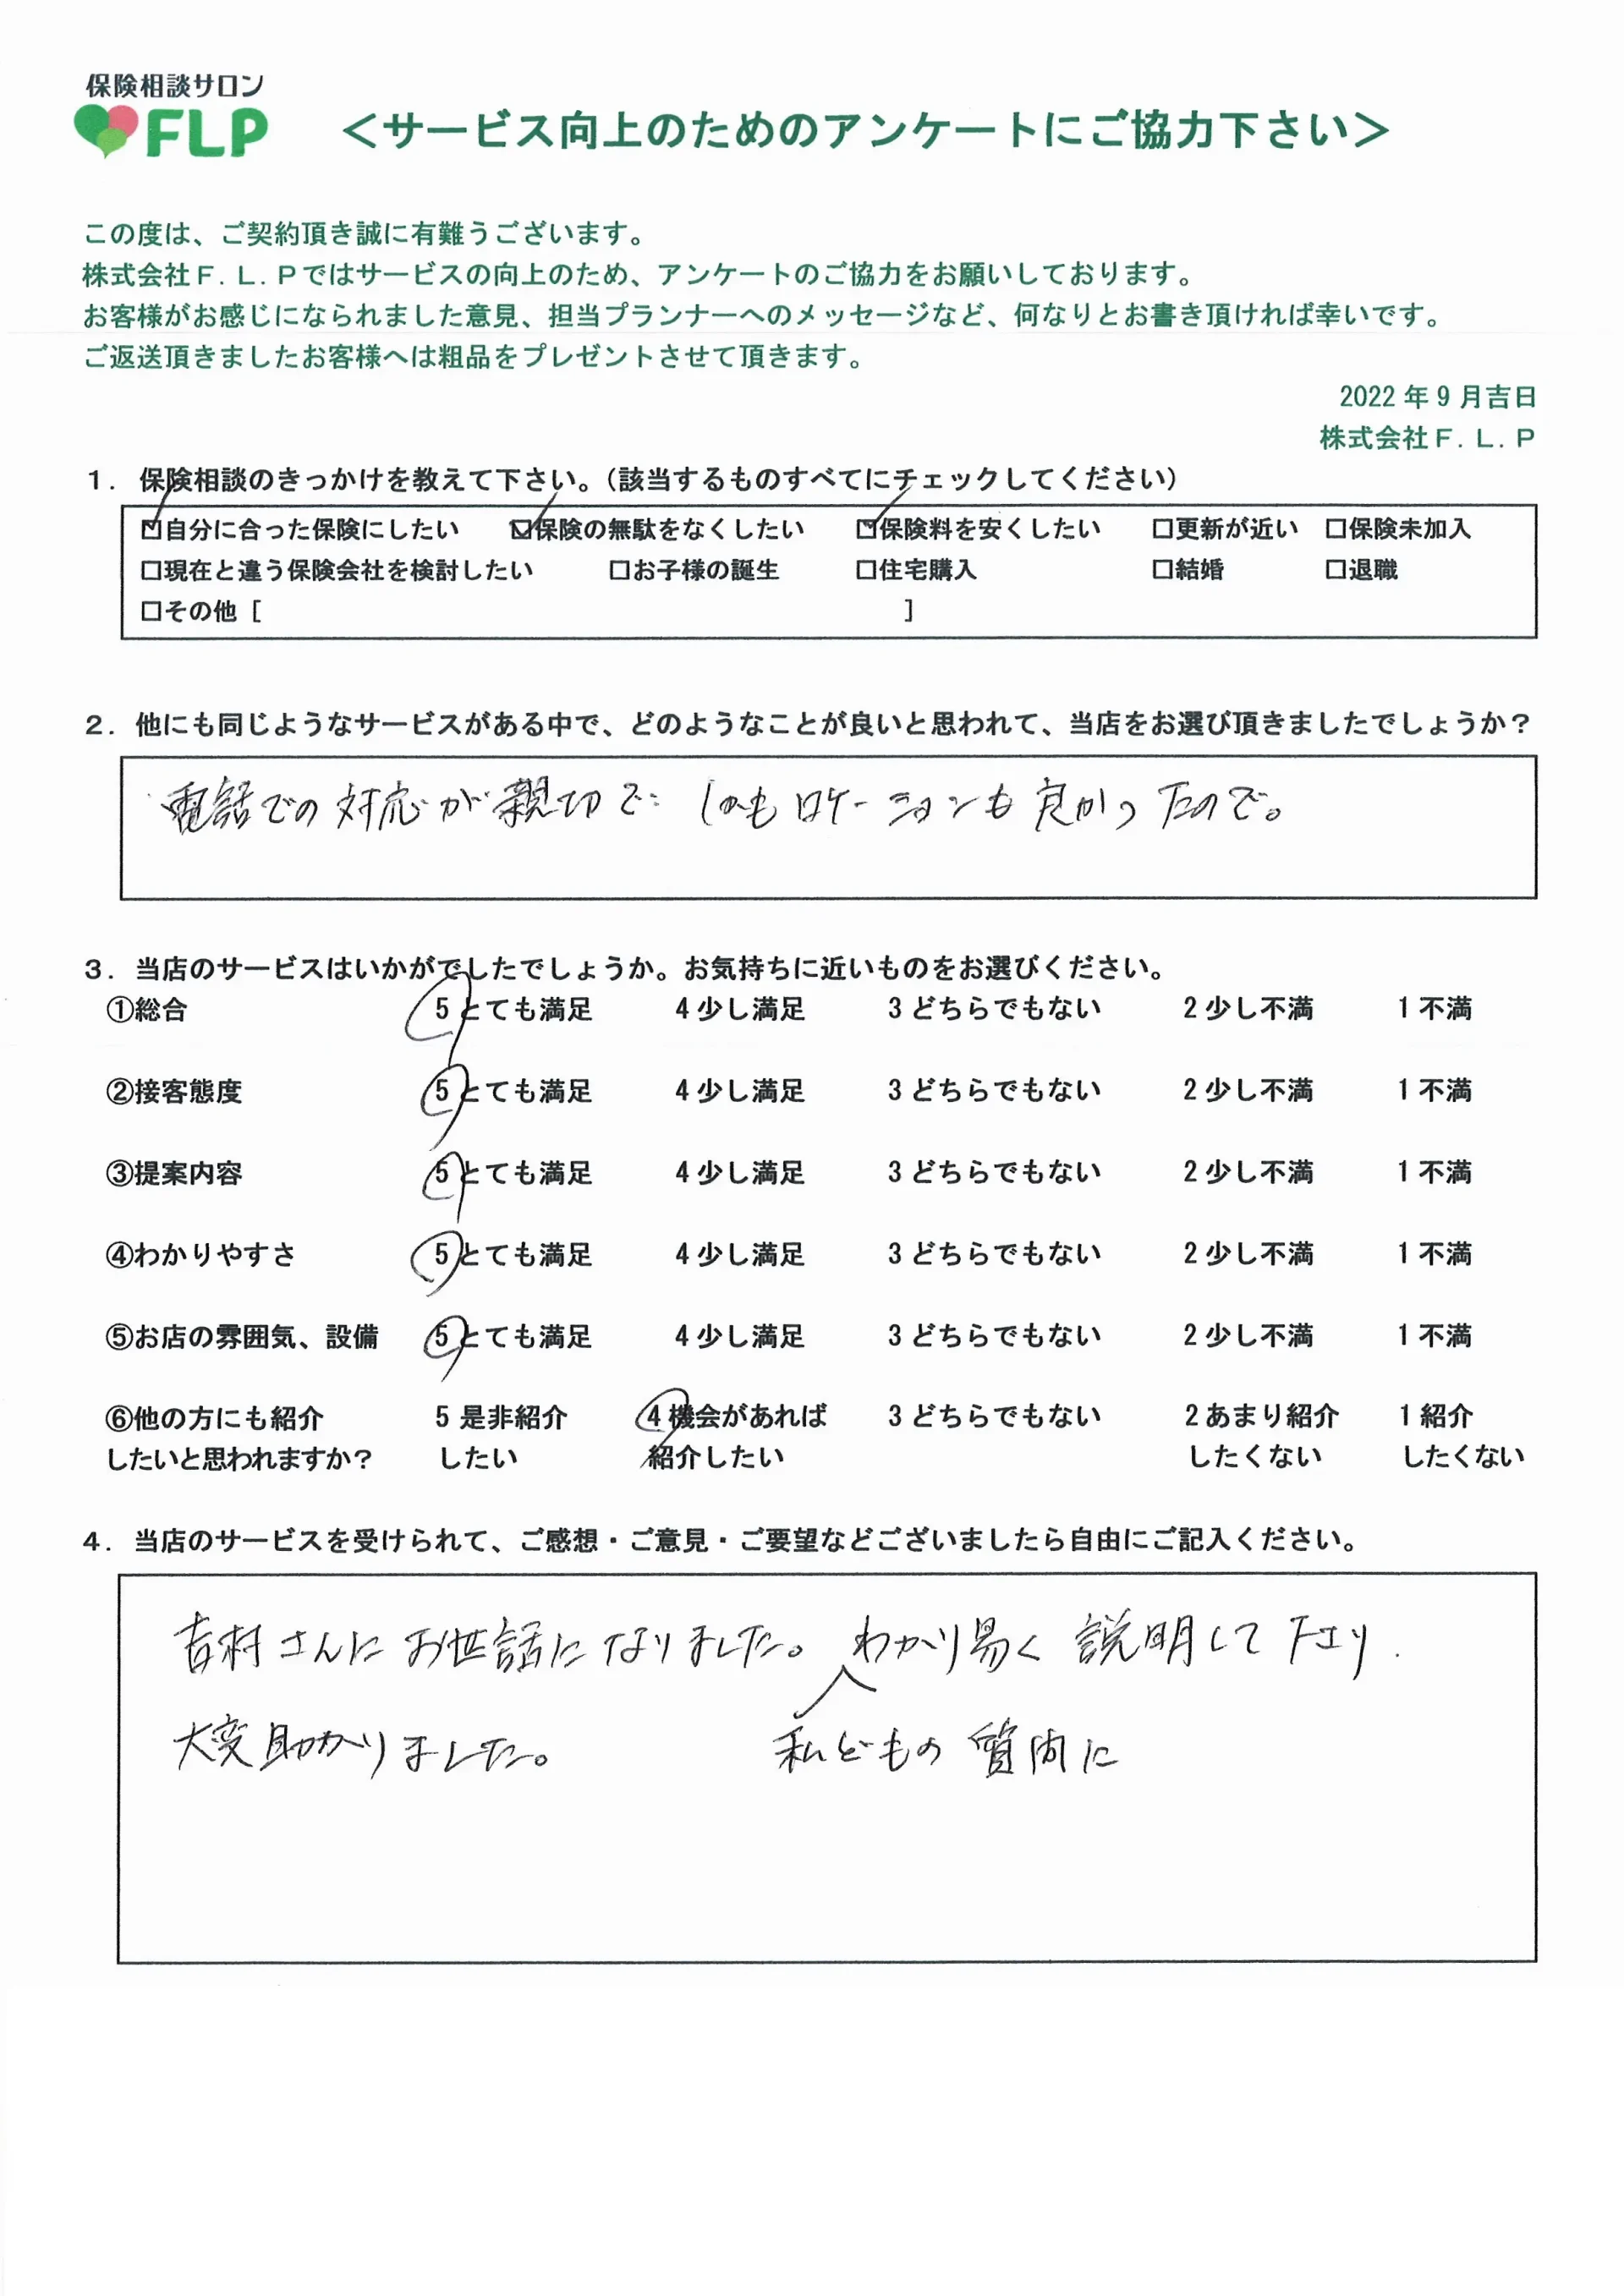 保険相談サロン
FLP
＜サービス向上のためのアンケートにご協力下さい＞
この度は、ご契約頂き誠に有難うございます。
株式会社F．L．Pではサービスの向上のため、アンケートのご協力をお願いしております。
お客様がお感じになられました意見、担当プランナーへのメッセージなど、何なりとお書き頂ければ幸いです。
ご返送頂きましたお客様へは粗品をプレゼントさせて頂きます。
2022年9月吉日
株式会社F．L．P
1．保険相談のきっかけを教えて下さい。（該当するものすべてにチェックしてください）
☑自分に合った保険にしたい ☑保険の無駄をなくしたい ☑保険料を安くしたい □更新が近い □保険未加入
□現在と違う保険会社を検討したい □お子様の誕生 □住宅購入 □結婚 □退職
□その他［ ］
2．他にも同じようなサービスがある中で、どのようなことが良いと思われて、当店をお選び頂きましたでしょうか？
電話での対応が親切で しかもロケーションも良かったので。
3．当店のサービスはいかがでしたでしょうか。お気持ちに近いものをお選びください。
①総合 5とても満足 4少し満足 3どちらでもない 2少し不満 1不満
②接客態度 5とても満足 4少し満足 3どちらでもない 2少し不満 1不満
③提案内容 5とても満足 4少し満足 3どちらでもない 2少し不満 1不満
④わかりやすさ 5とても満足 4少し満足 3どちらでもない 2少し不満 1不満
⑤お店の雰囲気、設備 5とても満足 4少し満足 3どちらでもない 2少し不満 1不満
⑥他の方にも紹介 5是非紹介 4機会があれば 3どちらでもない 2あまり紹介 1紹介
したいと思われますか？ したい 紹介したい したくない したくない
4．当店のサービスを受けられて、ご感想・ご意見・ご要望などございましたら自由にご記入ください。
吉村さんにお世話になりました。わかり易く説明して下さり
大変助かりました。 私どもの質問に